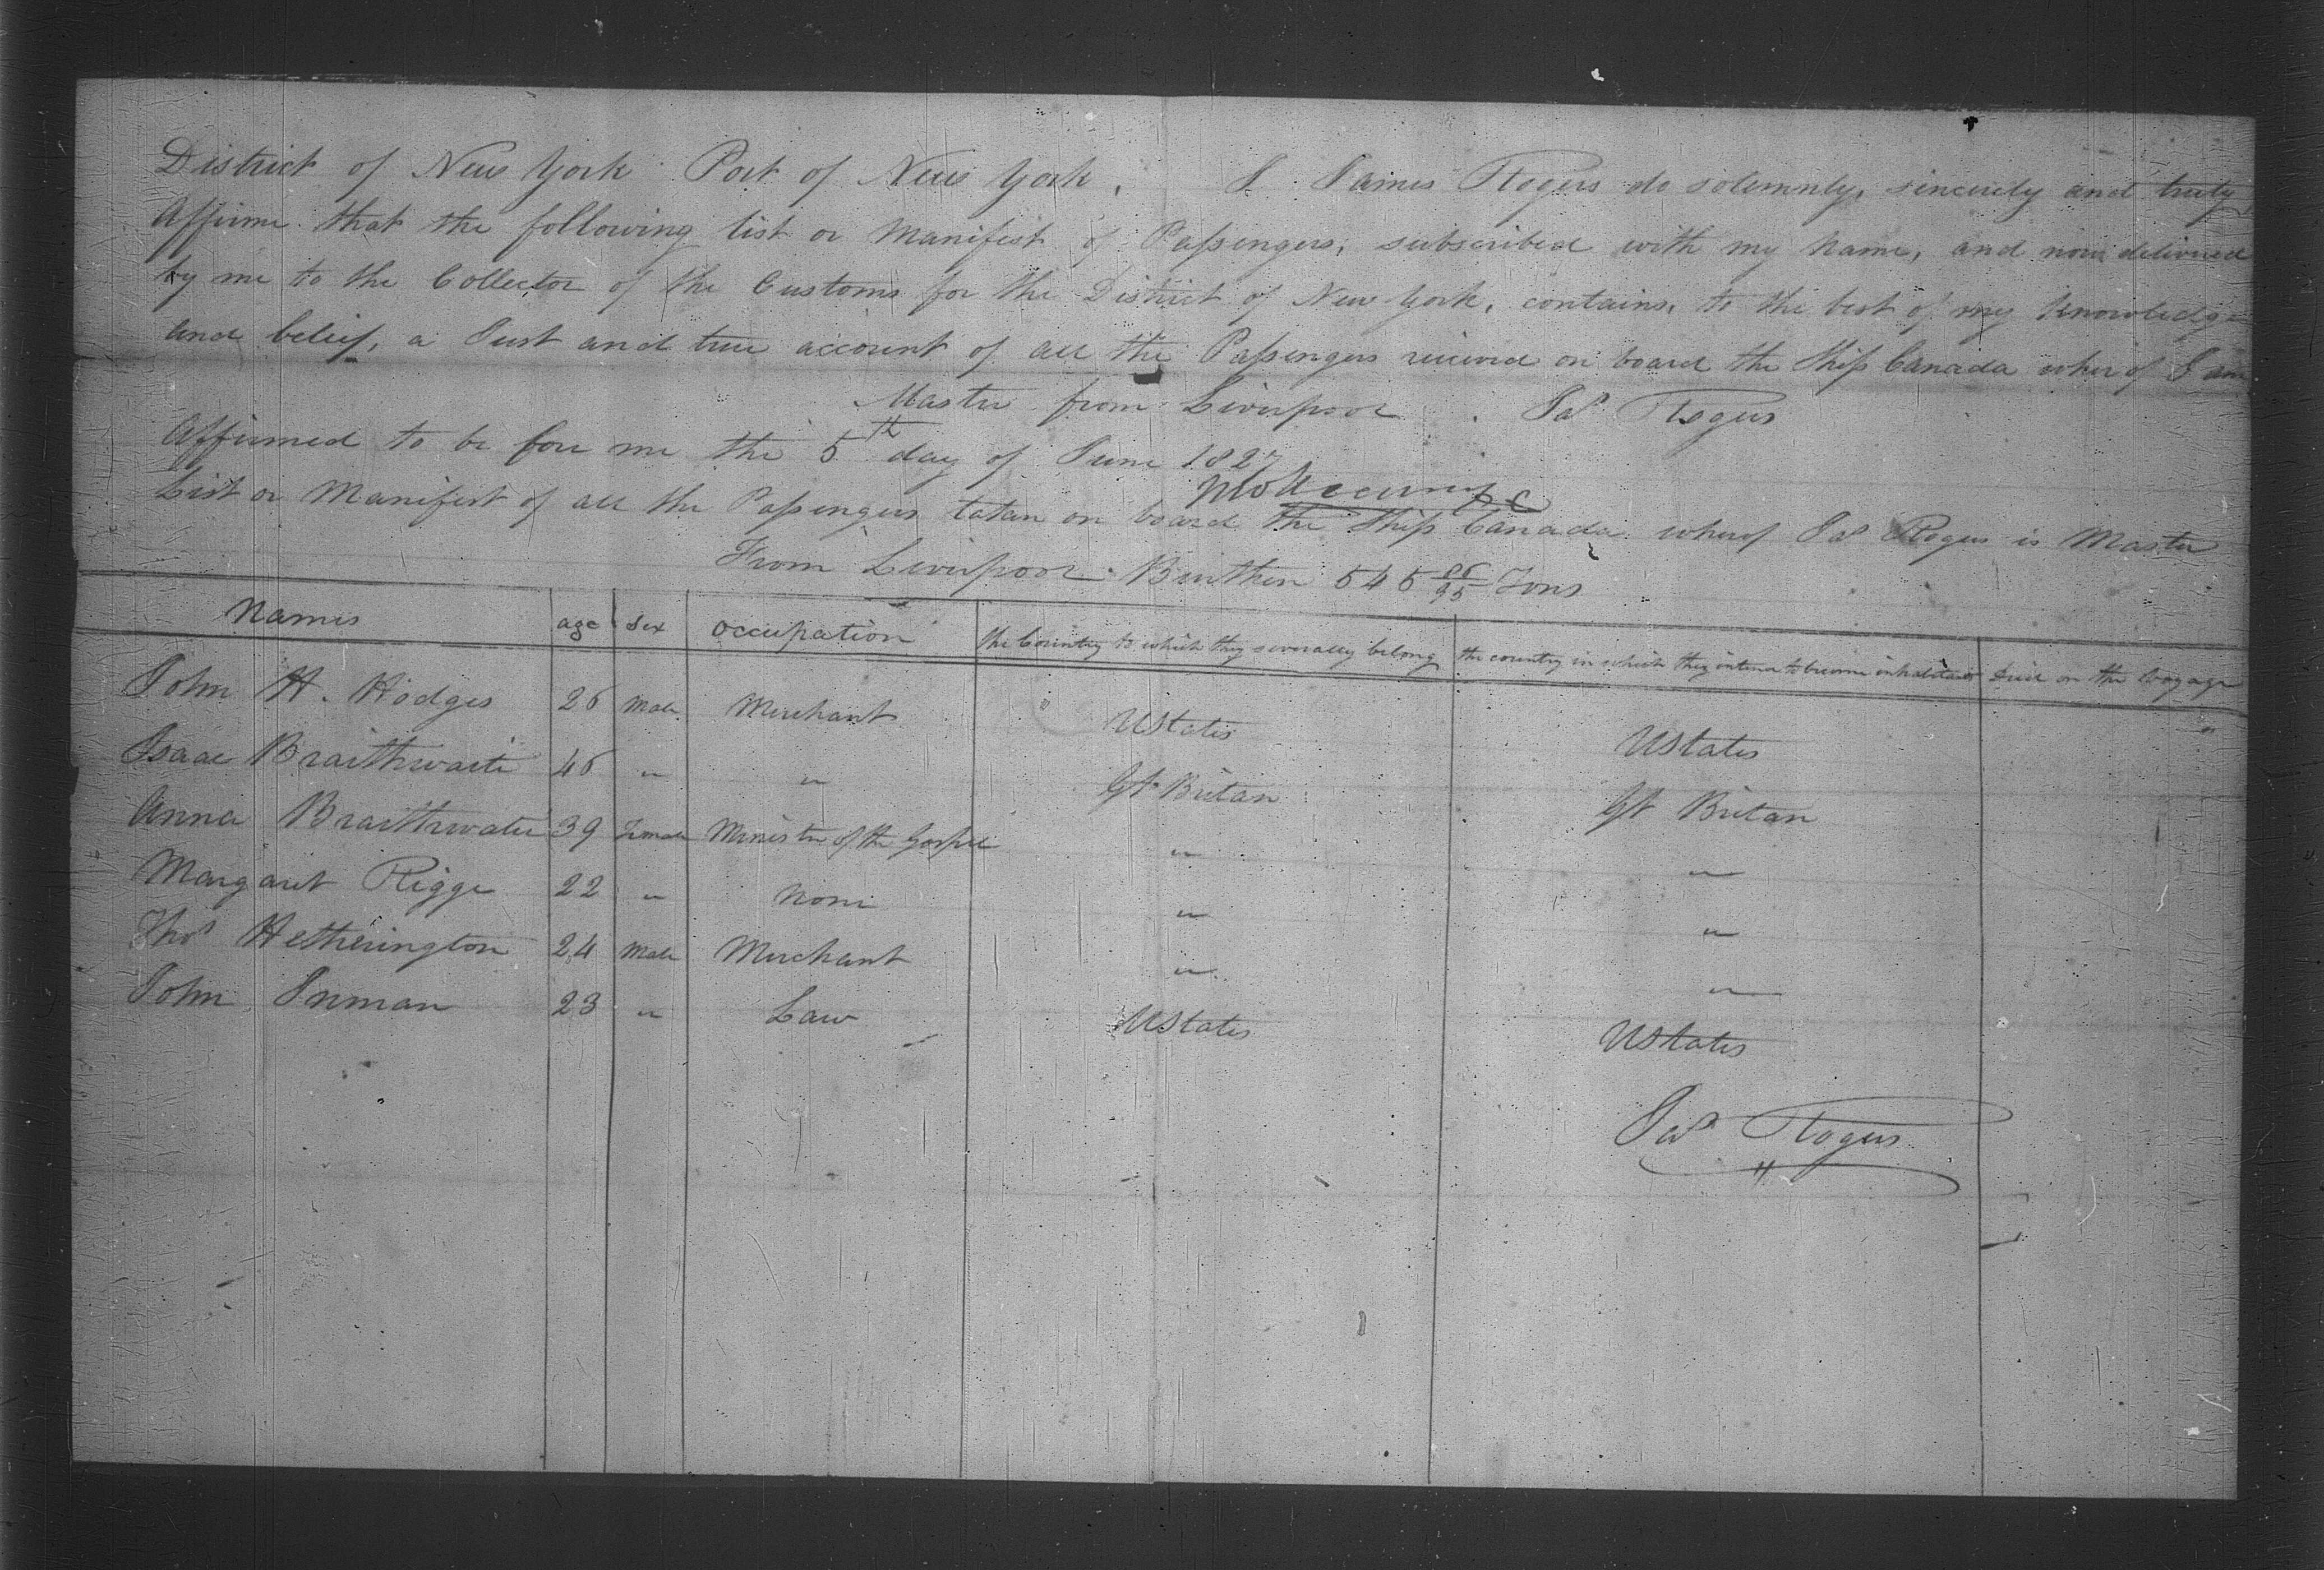 District of New York Port of New York. I James Rogers do solemnly, sincerely and truly
Affirm that the following list or Manifest of Passengers, subscribed with my name, and now delivered
by me to the Collector of the Customs for the District of New York, contains, to the best of my knowledge
and belief, a Just and true account of all the Passengers received on board the Ship Canada wherof I am
Master from Liverpool. Jas Rogers
Affirmed to be fore me the 5th day of June 1827
List or Manifest of all the Passengers tatan on board the Ship Canada wherof Jas Rogers is Master
From Liverpool Burthen 545 Tons
Names age Sex Occupation the Country to which they severally belong the country in which they intend to become inhabitants Died on the Voyage
John H. Hodges 26 Male Merchant UStates UStates
Isaac Braithwaite 46 " " Gt Britan Gt Britan
Anna Braithwaite 39 Female Minister of the Gospel " "
Margaret Rigge 22 " None " "
Thos Hetherington 24 Male Merchant " "
John Inman 23 " Law UStates UStates
Jas Rogers